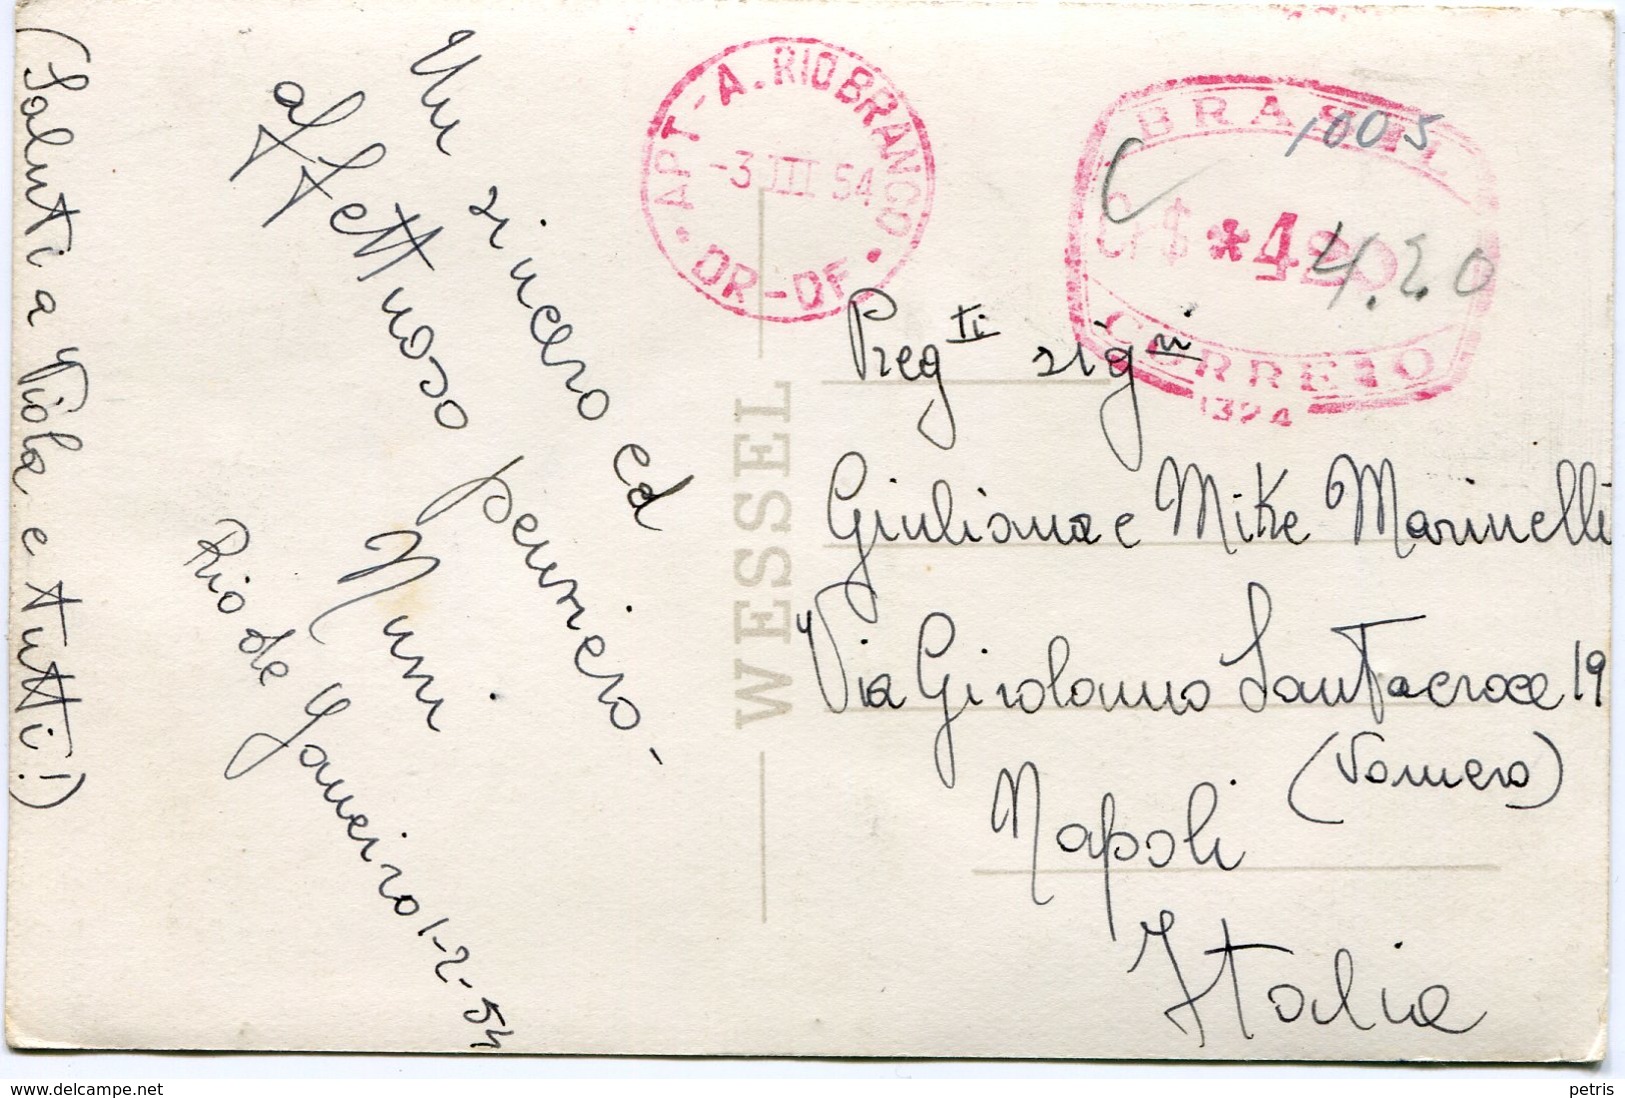 (Saluti a Viola e tutti!)
Un sincero ed
affettuoso pensiero-
Nini
Rio de Janeiro 1-2-54
WESSEL
APT-A. RIO BRANCO
-3 III 54
DR-DF
BRASIL
1005
Cr$ *420
4.20
CORREIO
1324
Preg ti sig ri
Giuliana e Mike Marinelli
Via Girolamo Santacroce 19
(Vomero)
Napoli
Italia
www.delcampe.net
petris